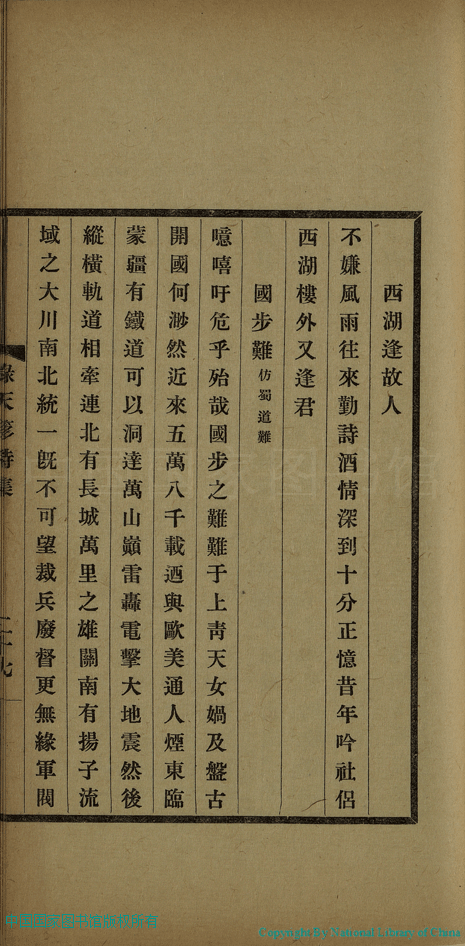 西湖逢故人
不嫌風雨往來勤詩酒情深到十分正憶昔年吟社侶
西湖樓外又逢君
國步難仿蜀道難
噫嘻吁危乎殆哉國步之難難于上靑天女媧及盤古
開國何渺然近來五萬八千載迺與歐美通人煙東臨
蒙疆有鐵道可以洞達萬山巔雷轟電擊大地震然後
縱橫軌道相牽連北有長城萬里之雄關南有揚子流
域之大川南北統一旣不可望裁兵廢督更無緣軍閥
天 詩集
Copyright By National Library of China